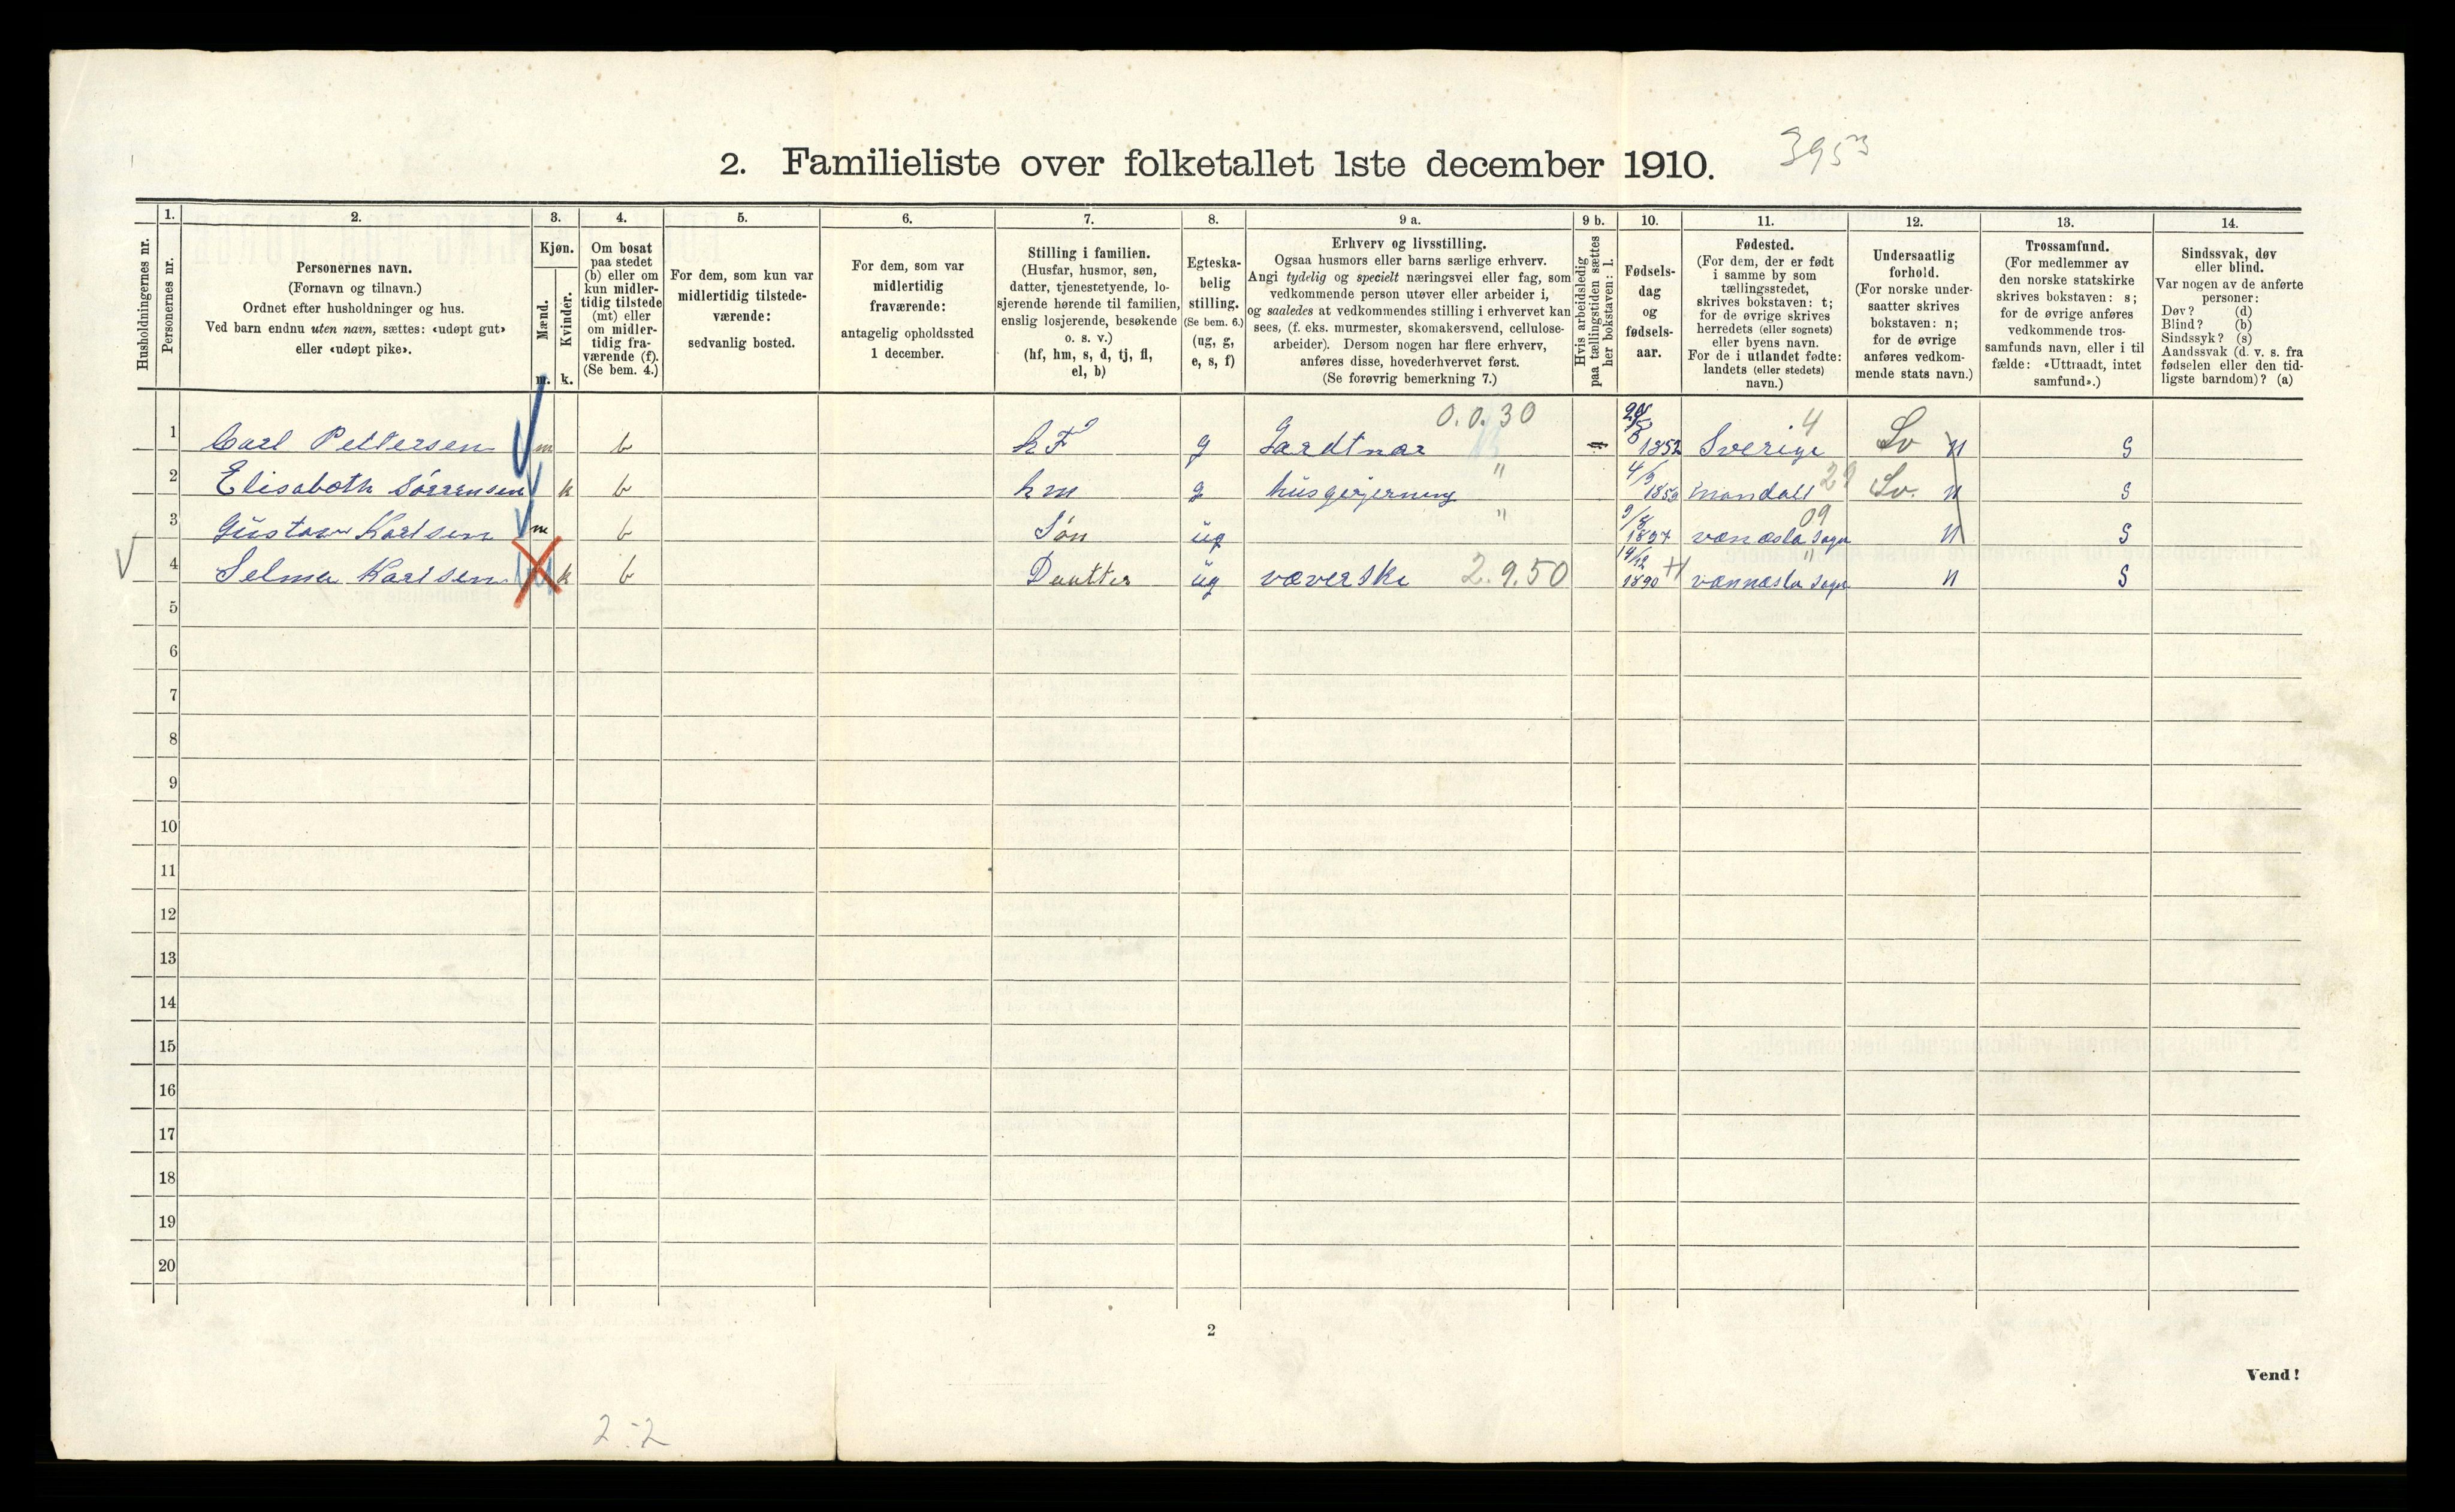 2. Familieliste over folketallet 1ste december 1910.
395
Husholdningernes nr.
1.
Personernes nr.
2.
Personernes navn.
(Fornavn og tilnavn.)
Ordnet efter husholdninger og hus.
Ved barn endnu uten navn, sættes: «udøpt gut»
eller «udøpt pike».
3.
Kjøn.
Mænd.
Kvinder.
m. k.
4.
Om bosat
paa stedet
(b) eller om
kun midler-
tidig tilstede
(mt) eller
om midler-
tidig fra-
værende (f).
(Se bem. 4.)
5.
For dem, som kun var
midlertidig tilstede-
værende:
sedvanlig bosted.
6.
For dem, som var
midlertidig
fraværende:
antagelig opholdssted
1 december.
7.
Stilling i familien.
(Husfar, husmor, søn,
datter, tjenestetyende, lo-
sjerende hørende til familien,
enslig losjerende, besøkende
o. s. v.)
(hf, hm, s, d, tj, fl,
el, b)
8.
Egteska-
belig
stilling.
(Se bem. 6.)
(ug, g,
e, s, f)
9 a.
Erhverv og livsstilling.
Ogsaa husmors eller barns særlige erhverv.
Angi tydelig og specielt næringsvei eller fag, som
vedkommende person utøver eller arbeider i,
og saaledes at vedkommendes stilling i erhvervet kan
sees, (f. eks. murmester, skomakersvend, cellulose-
arbeider). Dersom nogen har flere erhverv,
anføres disse, hovederhvervet først.
(Se forøvrig bemerkning 7.)
9 b.
Hvis arbeidsledig
paa tællingstiden sættes
her bokstaven: l.
10.
Fødsels-
dag
og
fødsels-
aar.
11.
Fødested.
(For dem, der er født
i samme by som
tællingsstedet,
skrives bokstaven: t;
for de øvrige skrives
herredets (eller sognets)
eller byens navn.
For de i utlandet fødte:
landets (eller stedets)
navn.)
12.
Undersaatlig
forhold.
(For norske under-
saatter skrives
bokstaven: n;
for de øvrige
anføres vedkom-
mende stats navn.)
13.
Trossamfund.
(For medlemmer av
den norske statskirke
skrives bokstaven: s;
for de øvrige anføres
vedkommende tros-
samfunds navn, eller i til
fælde: «Uttraadt, intet
samfund».)
14.
Sindssvak, døv
eller blind.
Var nogen av de anførte
personer:
Døv? (d)
Blind? (b)
Sindssyk? (s)
Aandssvak (d. v. s. fra
fødselen eller den tid-
ligste barndom)? (a)
0.0.30 4
1 Carl Pettersen m b hF g Gardtnar 1852 Sverige Sv n S
2 Elisabeth Sørrensen k b hm g husgerjerning " 4/9 Mandall Sv. n S
3 Gustav Karlsen m b Søn ug " 9/8 1897 vænæsla Sogn 09 n S
4 Selma Karlsen k b Dautter ug væverske 2.9.50 14/12 1890 vænnæsla Sogn " n S
5
6
7
8
9
10
11
12
13
14
15
16
17
18
19
20
2
Vend!
2-2